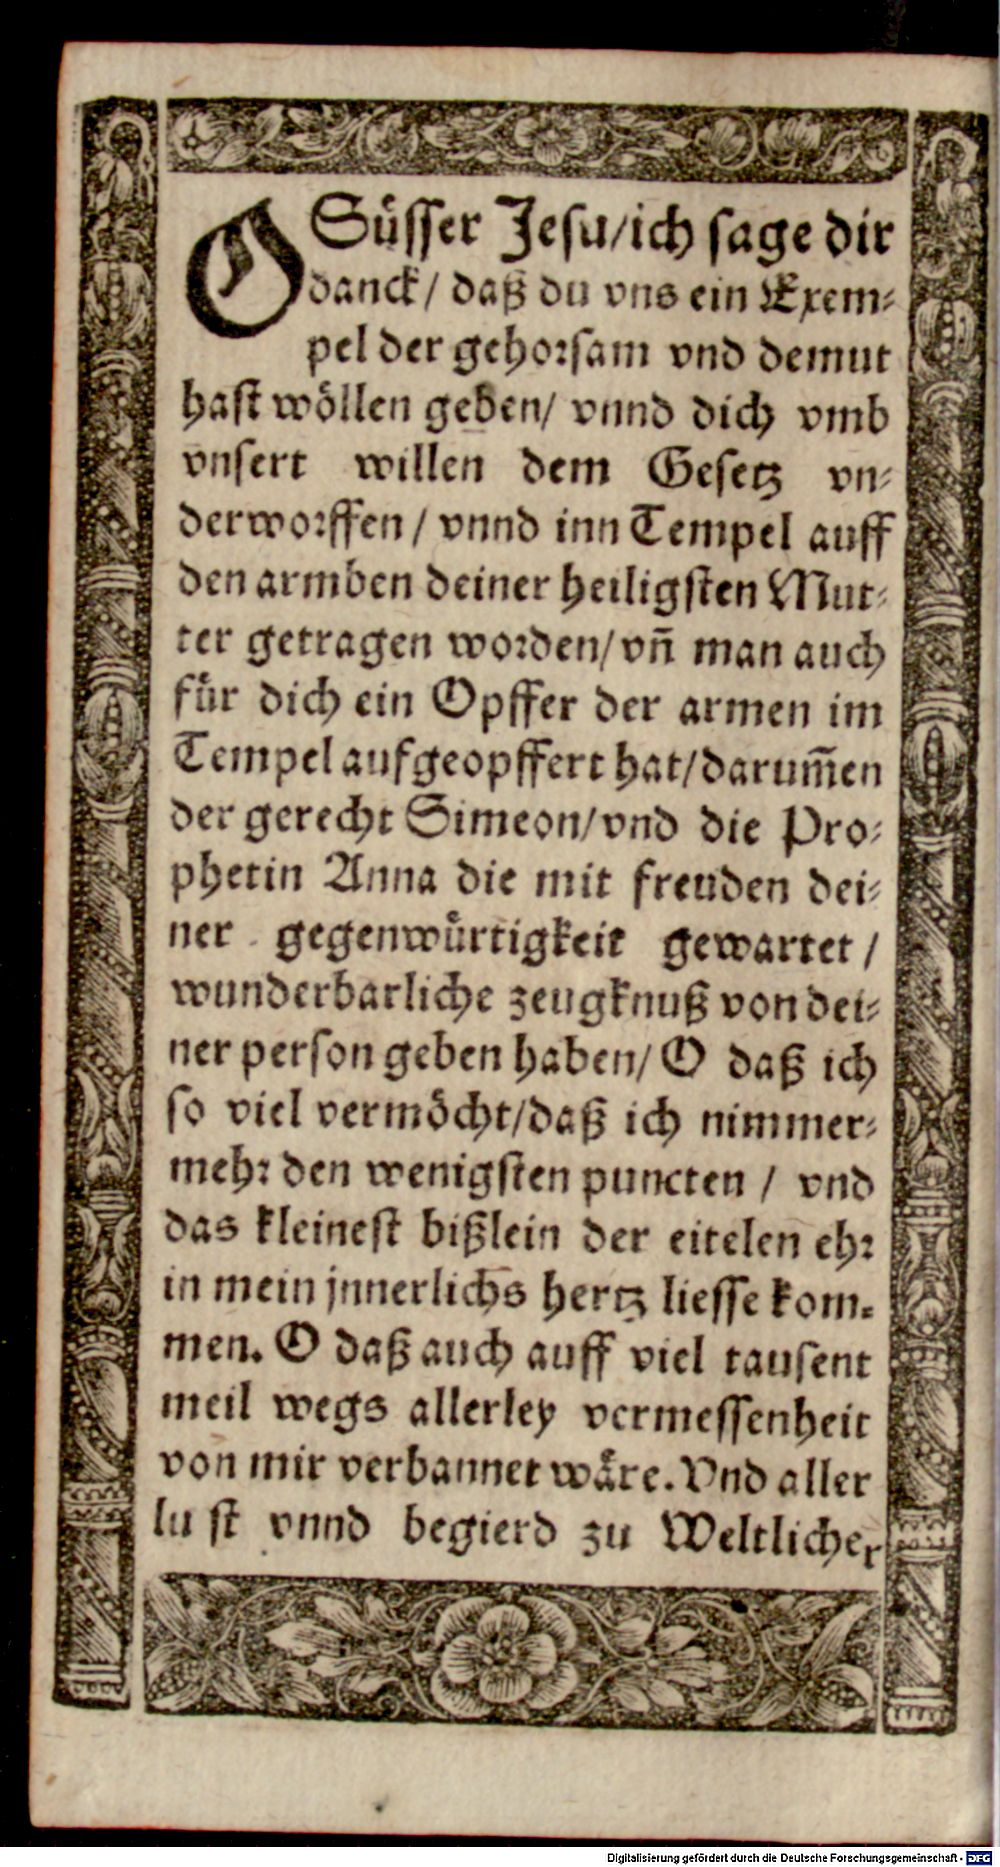 O Süsser Jesu/ich sage dir
danck/ daß du vns ein Exem⸗
pel der gehorsam vnd demut
hast wöllen geben/ vnnd dich vmb
vnsert willen dem Gesetz vn⸗
derworffen / vnnd inn Tempel auff
den armben deiner heiligsten Mut⸗
ter getragen worden/ vñ man auch
für dich ein Opffer der armen im
Tempel aufgeopffert hat/darum̃en
der gerecht Simeon/vnd die Pro⸗
phetin Anna die mit freuden dei⸗
ner gegenwürtigkeit gewartet /
wunderbarliche zeugknuß von dei⸗
ner person geben haben/ O daß ich
so viel vermöcht/daß ich nimmer⸗
mehr den wenigsten puncten / vnd
das kleinest bißlein der eitelen ehr
in mein jnnerlichs hertz liesse kom⸗
men. O daß auch auff viel tausent
meil wegs allerley vermessenheit
von mir verbannet wäre. Vnd aller
lust vnnd begierd zu Weltlicher
Digitalisierung gefördert durch die Deutsche Forschungsgemeinschaft - DFG